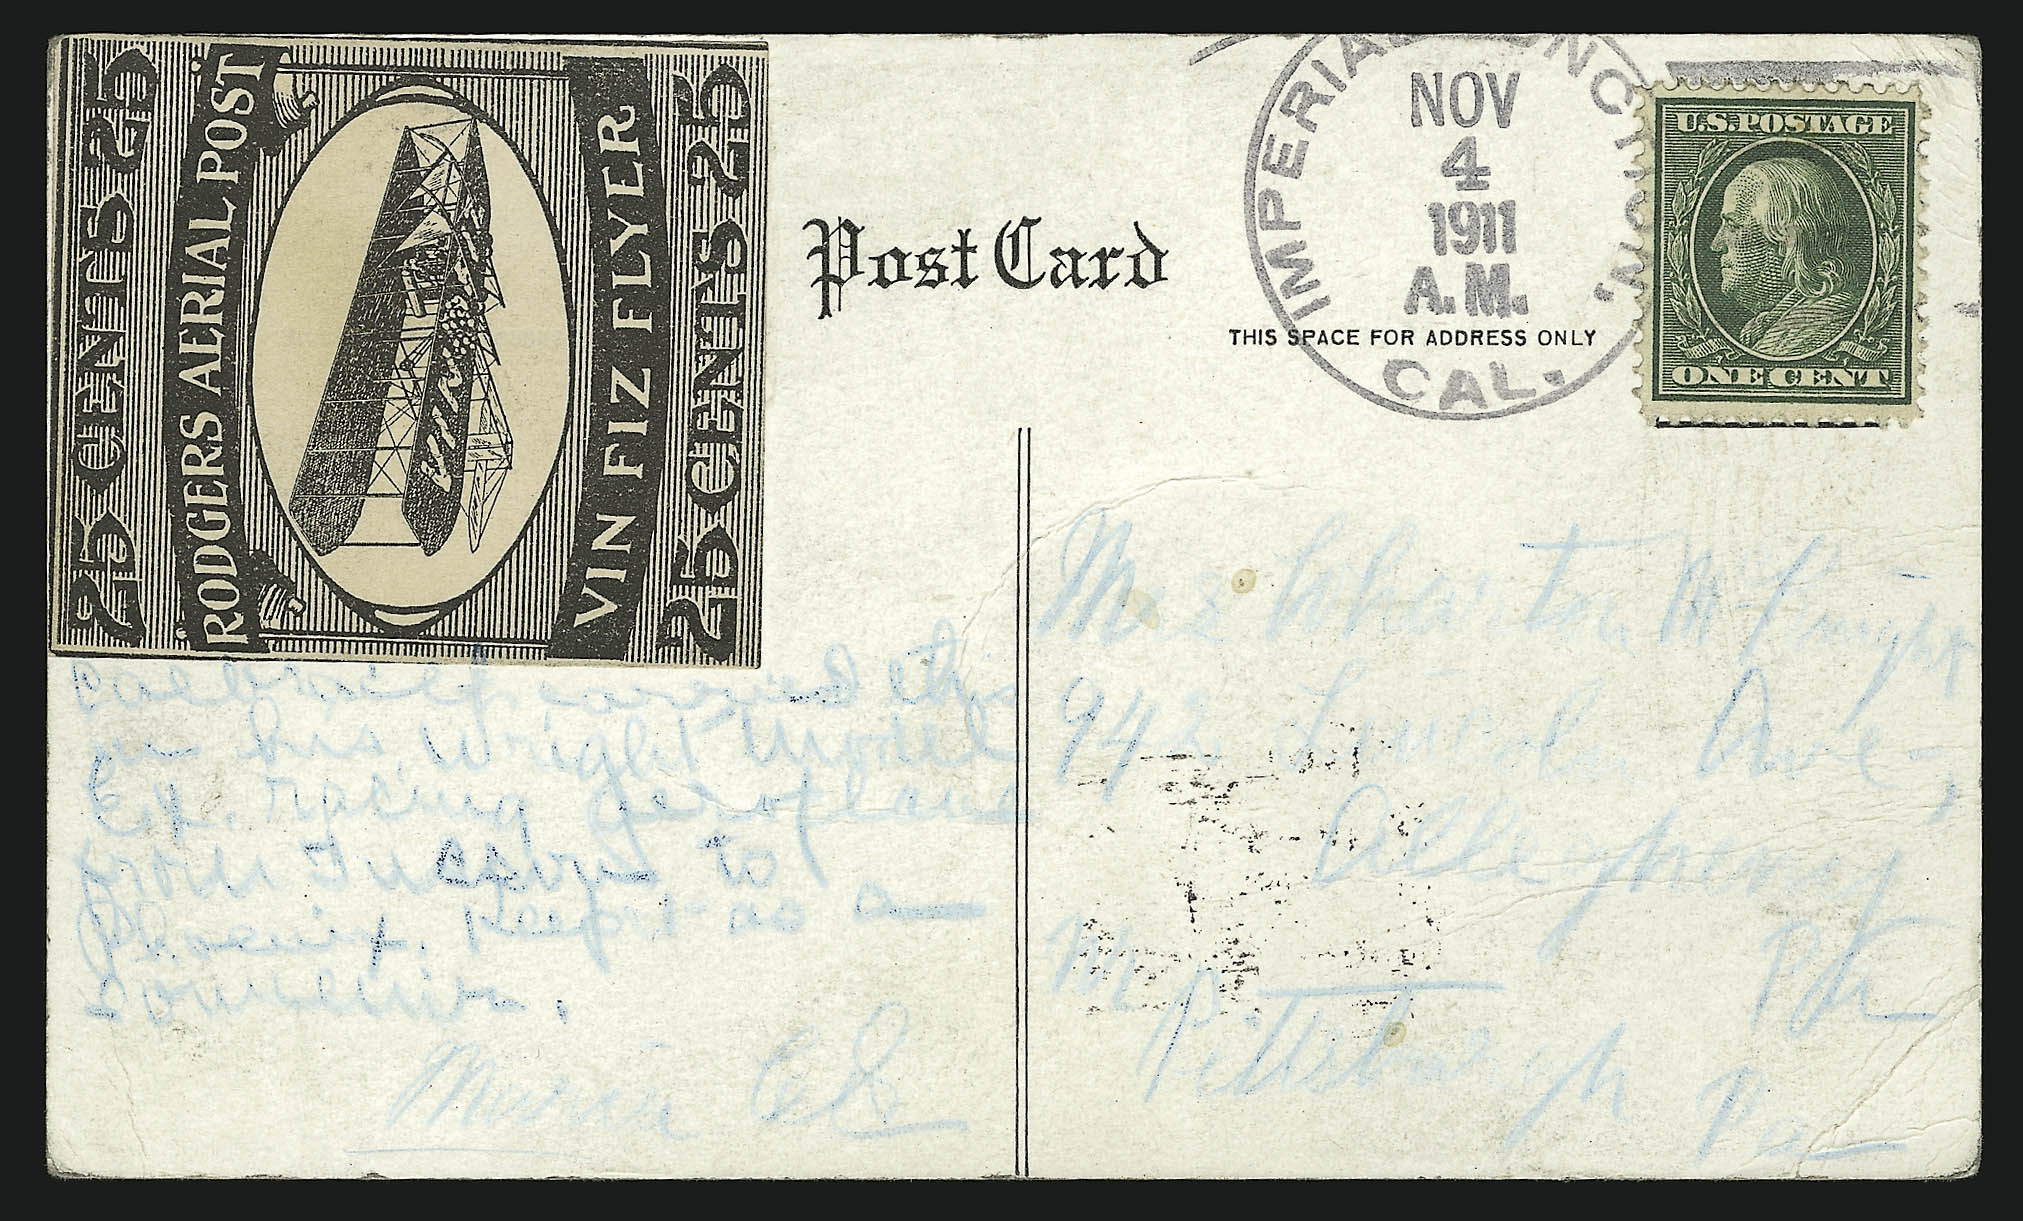 25 CENTS 25
RODGERS AERIAL POST
VIN FIZ FLYER
25 CENTS 25
Post Card
THIS SPACE FOR ADDRESS ONLY
IMPERIAL JUNCTION, CAL.
NOV
4
1911
A.M.
U.S. POSTAGE
ONE CENT
carried this
in his Wright Model
Ex. racing aeroplane
from Tucson to
Phoenix. Keep it as a
souvenir.
Maria
Mrs Wharton McKnight
942 Lincoln Ave.,
Allegheny
Pa
Pittsburgh Pa